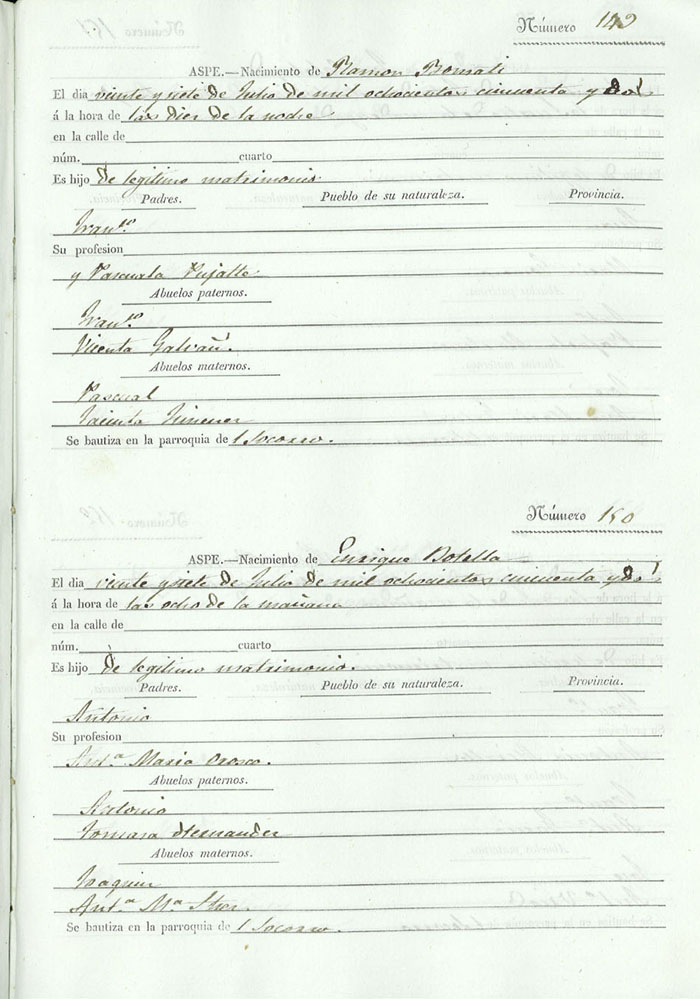 Número 149
ASPE.—Nacimiento de Ramon Bonmati
El dia veinte y siete de Julio de mil ochocientos cincuenta y dos
á la hora de las diez de la noche
en la calle de
núm. cuarto
Es hijo de legitimo matrimonio
Padres. Pueblo de su naturaleza. Provincia.
Franco
Su profesion
y Pascuala Pujalte
Abuelos paternos.
Franco
Vicenta Galvañ.
Abuelos maternos.
Pascual
Jacinta Jimenez
Se bautiza en la parroquia de l Socorro.
Número 150
ASPE.—Nacimiento de Enrique Botella
El dia veinte y siete de Julio de mil ochocientos cincuenta y dos
á la hora de las ocho de la mañana
en la calle de
núm. cuarto
Es hijo de legitimo matrimonio.
Padres. Pueblo de su naturaleza. Provincia.
Antonio
Su profesion
Anta Maria Orosco.
Abuelos paternos.
Antonio
Tomasa Hernandez
Abuelos maternos.
Joaquin
Anta Ma
Se bautiza en la parroquia de l Socorro.